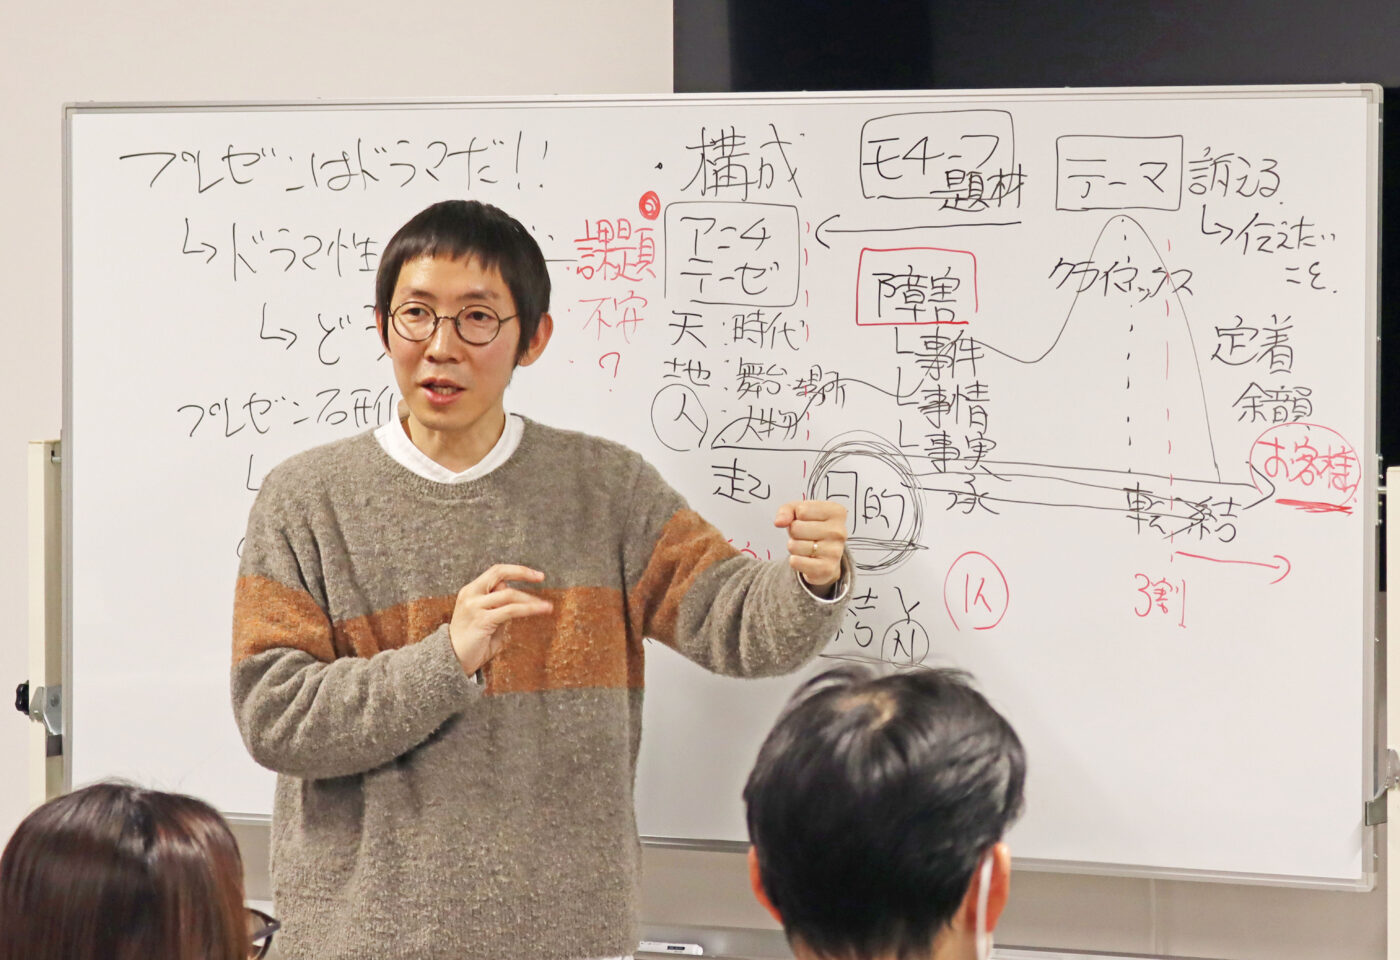 プレゼンはドラマだ!!
↳ドラマ性
課題
不安
?
↳ど
プレゼン
・構成
アンチ
テーゼ
天:時代
地:舞台・場所
人:人物
起
目的
結
モチーフ
題材
障害
事件
事情
事実
承
テーマ
訴える
↳伝えたい
こと。
クライマックス
定着
余韻
お客様
転
結
3割